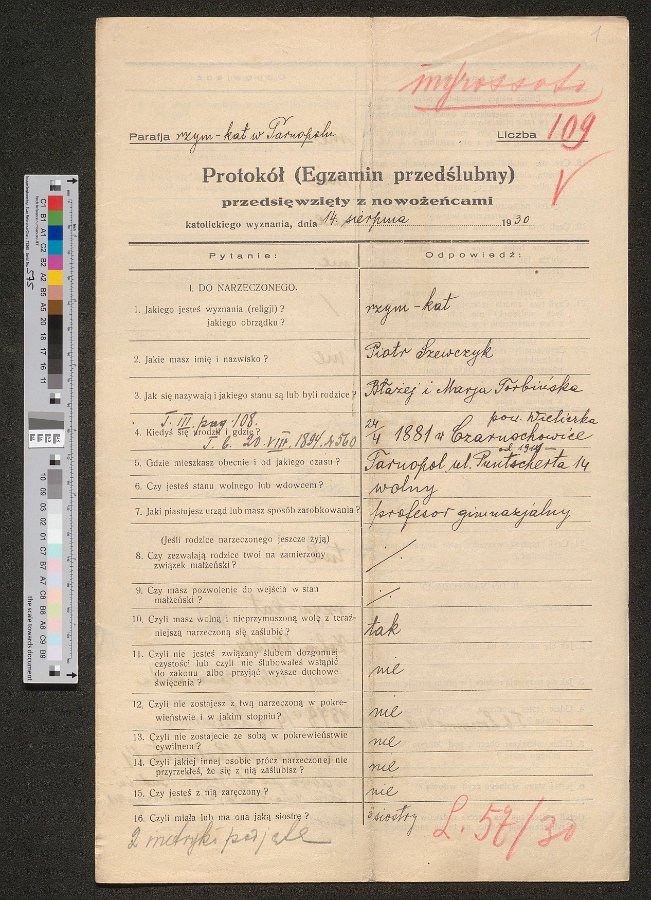 1
ingrossata
Parafja rzym-kat w Tarnopolu
Liczba 109
Protokół (Egzamin przedślubny)
przedsięwzięty z nowożeńcami
katolickiego wyznania, dnia 14. sierpnia 1930
Pytanie: Odpowiedź:
I. DO NARZECZONEGO.
1. Jakiego jesteś wyznania (religji) ?
jakiego obrządku ?
rzym-kat
2. Jakie masz imię i nazwisko ?
Piotr Szewczyk
3. Jak się nazywają i jakiego stanu są lub byli rodzice ?
Błażej i Marja Torbińska
T. III. pag 108.
4. Kiedyś się urodził i gdzie ?
T. 6. 20. VIII. 1894. 560
pow. Wieliczka
24/4 1881 w Czarnochowice
5. Gdzie mieszkasz obecnie i od jakiego czasu ?
Tarnopol ul. Puntscherta 14
6. Czy jesteś stanu wolnego lub wdowcem ?
wolny
7. Jaki piastujesz urząd lub masz sposób zarobkowania ?
profesor gimnazjalny
(Jeśli rodzice narzeczonego jeszcze żyją)
8. Czy zezwalają rodzice twoi na zamierzony
związek małżeński ?
./.
9. Czy masz pozwolenie do wejścia w stan
małżeński ?
./.
10. Czyli masz wolną i nieprzymuszoną wolę z teraź-
niejszą narzeczoną się zaślubić ?
tak
11. Czyli nie jesteś związany ślubem dozgonnej
czystości lub czyli nie ślubowałeś wstąpić
do zakonu albo przyjąć wyższe duchowe
święcenia ?
nie
12. Czyli nie zostajesz z twą narzeczoną w pokre-
wieństwie i w jakim stopniu ?
nie
13. Czyli nie zostajecie ze sobą w pokrewieństwie
cywilnem ?
nie
14. Czyli jakiej innej osobie prócz narzeczonej nie
przyrzekłeś, że się z nią zaślubisz ?
nie
15. Czy jesteś z nią zaręczony ?
nie
16. Czyli miała lub ma ona jaką siostrę ?
siostry
2 metryki
L. 57/30